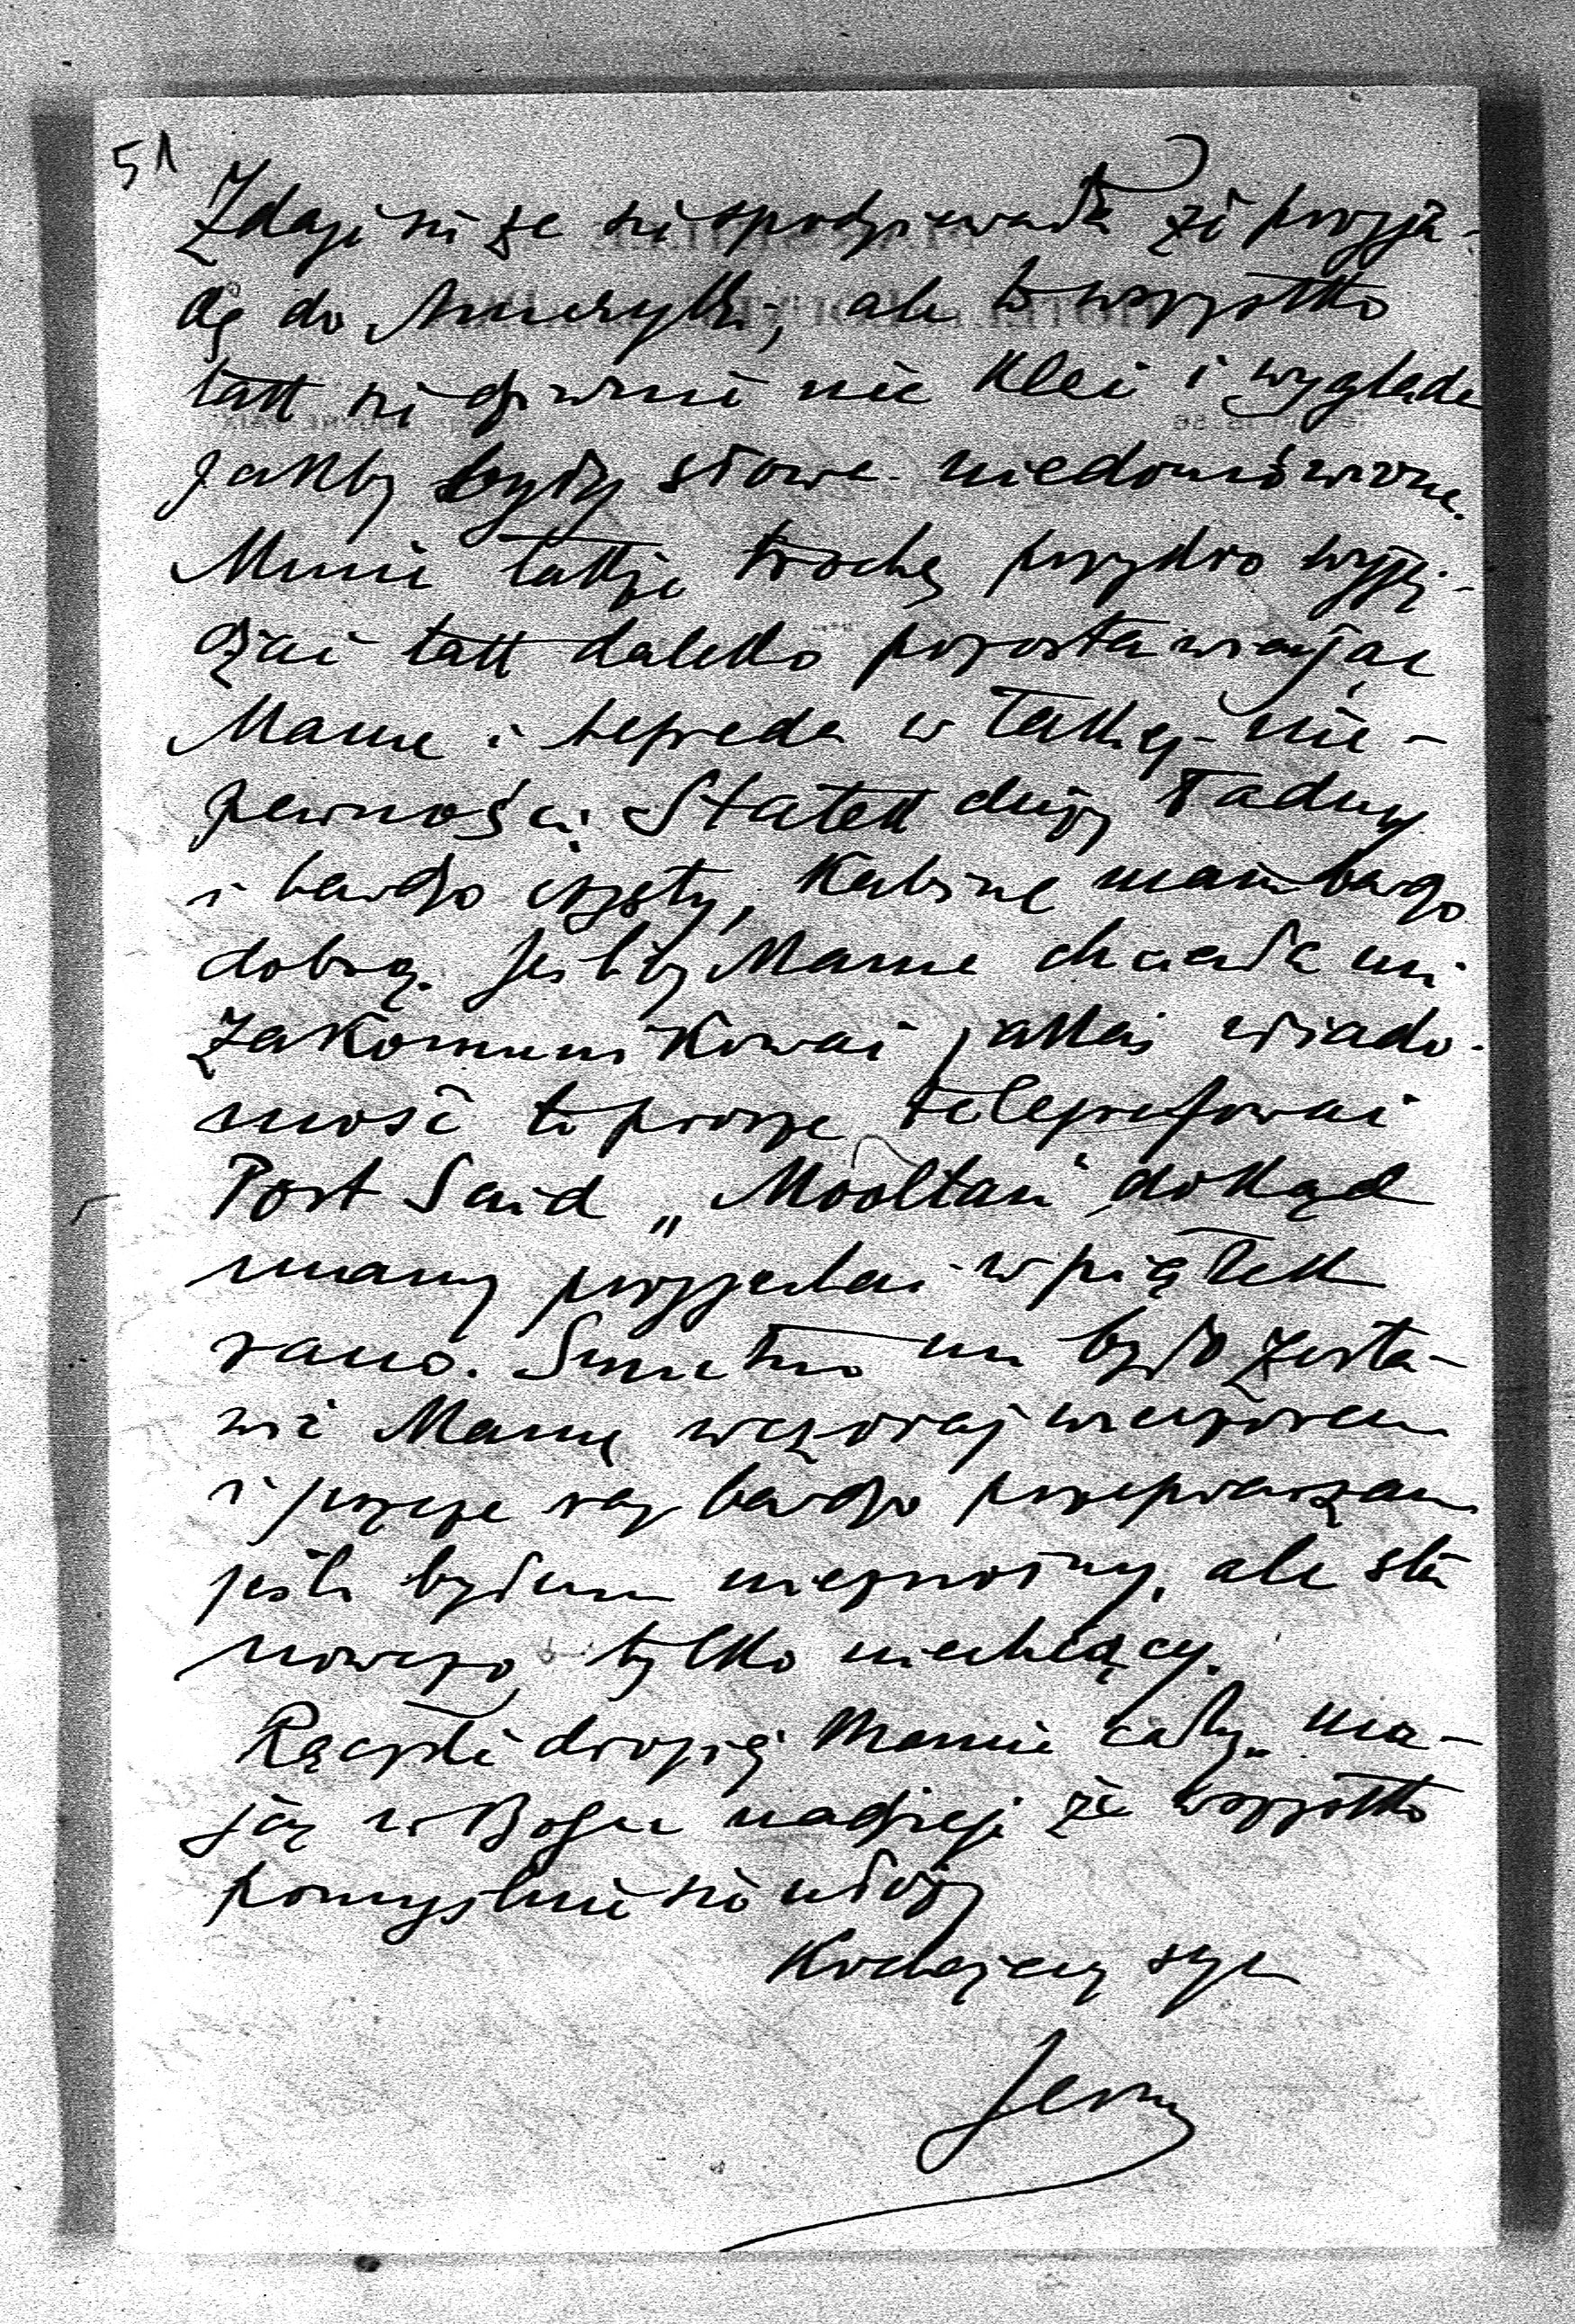 51
Zdaje się że się spodziewała że przyja-
dę do Ameryki, ale to wszystko
tak się dziwnie nie klei i wygląda
jakby były słowa niedomówione.
Mnie także trochę przykro wyjeż-
dżać tak daleko pozostawiając
Mamę i w takiej nie-
pewności. Statek duży ładny
i bardzo czysty, Kabinę mam bardzo
dobrą. Jeśliby Mama chciała mi
zakomunikować jakąś wiado-
mość to proszę telegrafować
Port Said „Mooltan" dokąd
mamy przyjechać w piątek
rano. Smutno mi było zosta-
wić Mamę wczoraj wieczorem
i jeszcze raz bardzo przepraszam
jeśli byłem nieznośny, ale sta
nowczo tylko niechcący.
Rączki drogiej Mamie całuję ma-
jąc w Bogu nadzieję że wszystko
pomyślnie się ułoży
Kochający syn
Jerzy